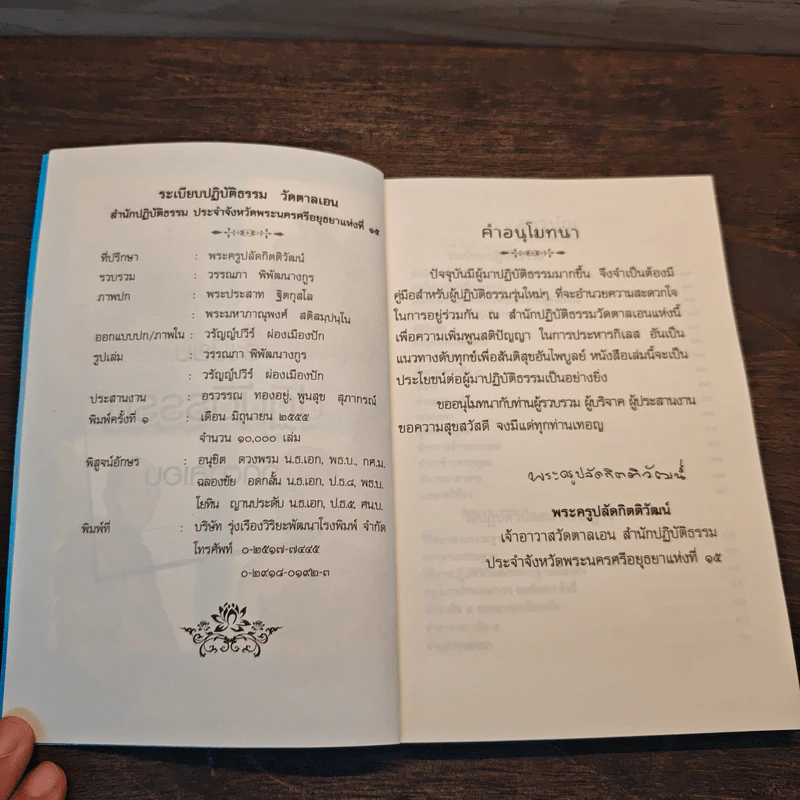 ระเบียบปฏิบัติธรรม วัดตาลเอน
สำนักปฏิบัติธรรม ประจำจังหวัดพระนครศรีอยุธยาแห่งที่ ๑๕
ที่ปรึกษา : พระครูปลัดกิตติวัฒน์
รวบรวม : วรรณภา พิพัฒนางกูร
ภาพปก : พระประสาท ฐิตกุสโล
: พระมหาภาณุพงศ์ สติสมฺปนฺโน
ออกแบบปก/ภาพใน : วรัญญ์ปวีร์ ผ่องเมืองปัก
รูปเล่ม : วรรณภา พิพัฒนางกูร
: วรัญญ์ปวีร์ ผ่องเมืองปัก
ประสานงาน : อรวรรณ ทองอยู่, พูนสุข สุภาภรณ์
พิมพ์ครั้งที่ ๑ : เดือน มิถุนายน ๒๕๕๕
จำนวน ๑๐,๐๐๐ เล่ม
พิสูจน์อักษร : อนุชิต ดวงพรม น.ธ.เอก, พธ.บ., กศ.ม.
ฉลองชัย อดกลั้น น.ธ.เอก, ป.ธ.๔, พธ.บ.
โยทิน ญานประดับ น.ธ.เอก, ป.ธ.๕, ศน.บ.
พิมพ์ที่ : บริษัท รุ่งเรืองวิริยะพัฒนาโรงพิมพ์ จำกัด
โทรศัพท์ ๐-๒๕๑๗-๗๔๔๕
๐-๒๙๑๘-๐๑๙๒-๓
คำอนุโมทนา
ปัจจุบันมีผู้มาปฏิบัติธรรมมากขึ้น จึงจำเป็นต้องมี
คู่มือสำหรับผู้ปฏิบัติธรรมรุ่นใหม่ๆ ที่จะอำนวยความสะดวกใจ
ในการอยู่ร่วมกัน ณ สำนักปฏิบัติธรรมวัดตาลเอนแห่งนี้
เพื่อความเพิ่มพูนสติปัญญา ในการประหารกิเลส อันเป็น
แนวทางดับทุกข์เพื่อสันติสุขอันไพบูลย์ หนังสือเล่มนี้จะเป็น
ประโยชน์ต่อผู้มาปฏิบัติธรรมเป็นอย่างยิ่ง
ขออนุโมทนากับท่านผู้รวบรวม ผู้บริจาค ผู้ประสานงาน
ขอความสุขสวัสดี จงมีแด่ทุกท่านเทอญ
พระครูปลัดกิตติวัฒน์
พระครูปลัดกิตติวัฒน์
เจ้าอาวาสวัดตาลเอน สำนักปฏิบัติธรรม
ประจำจังหวัดพระนครศรีอยุธยาแห่งที่ ๑๕